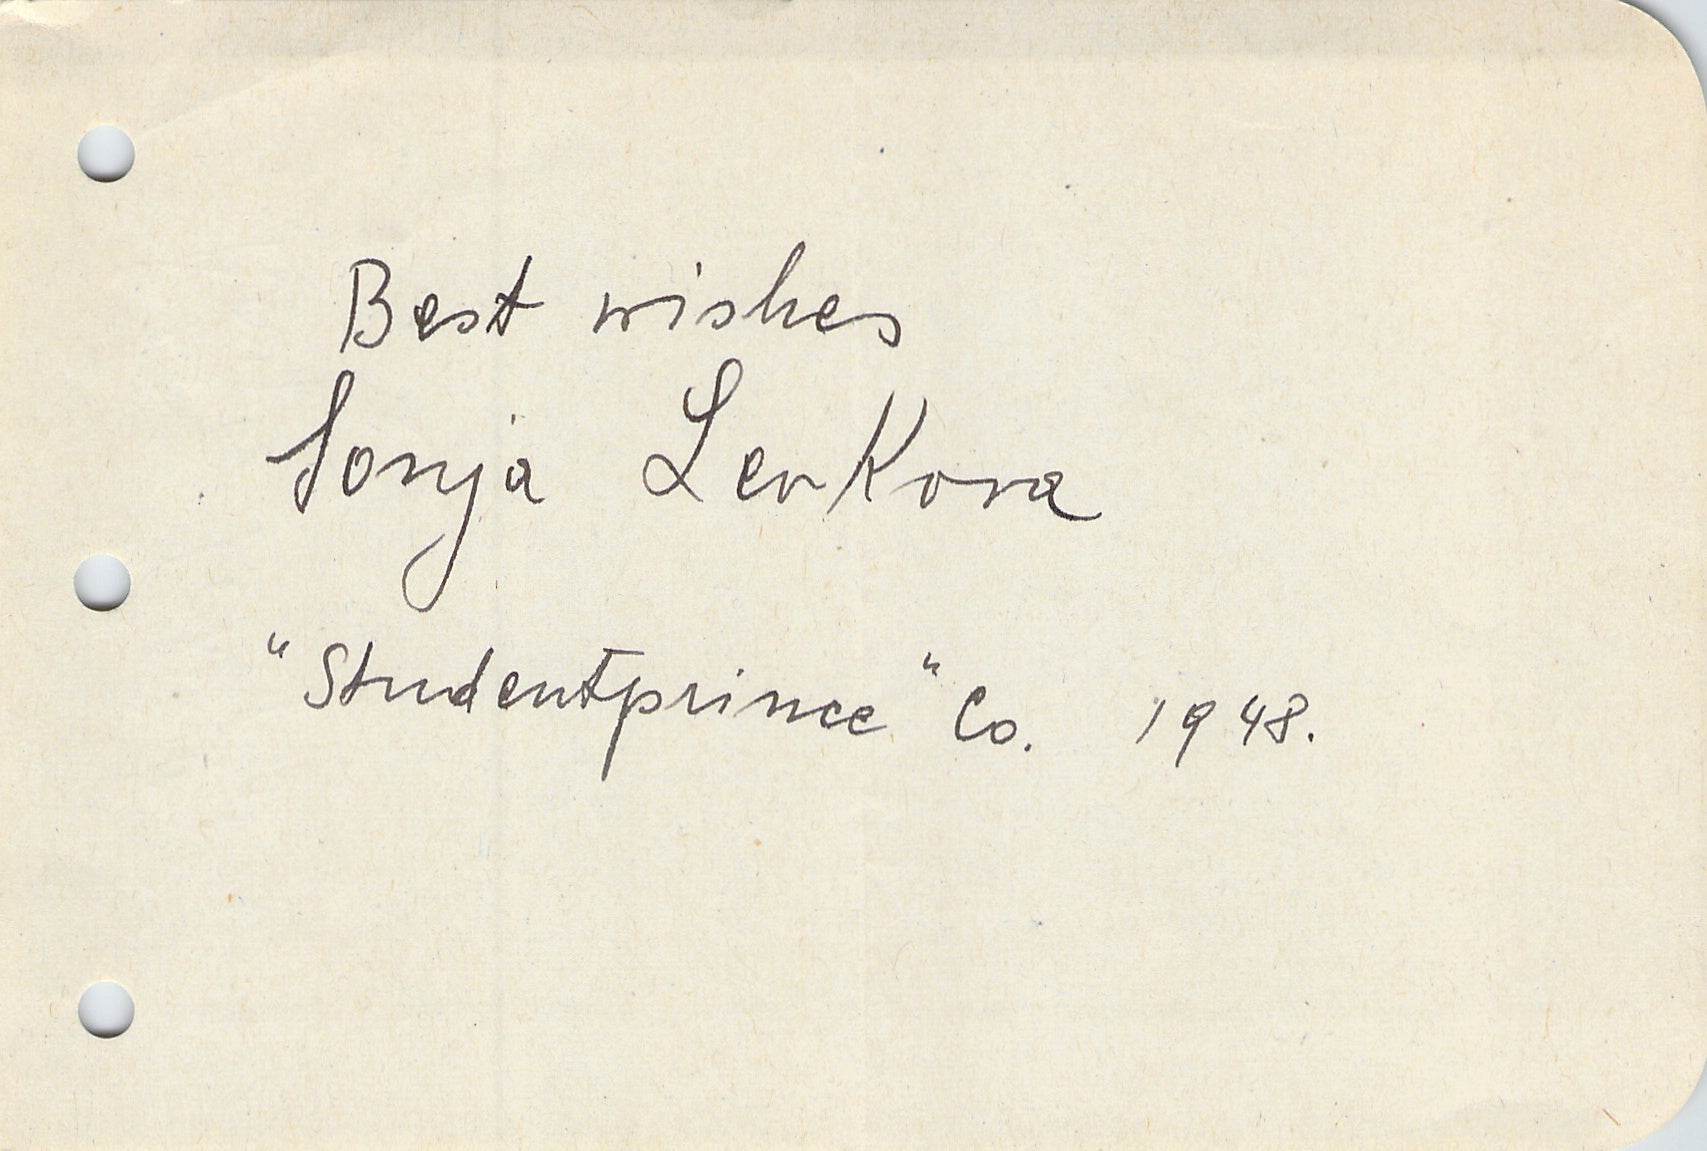 Best wishes
Sonja Levkova
"Studentprince" Co. 1948.